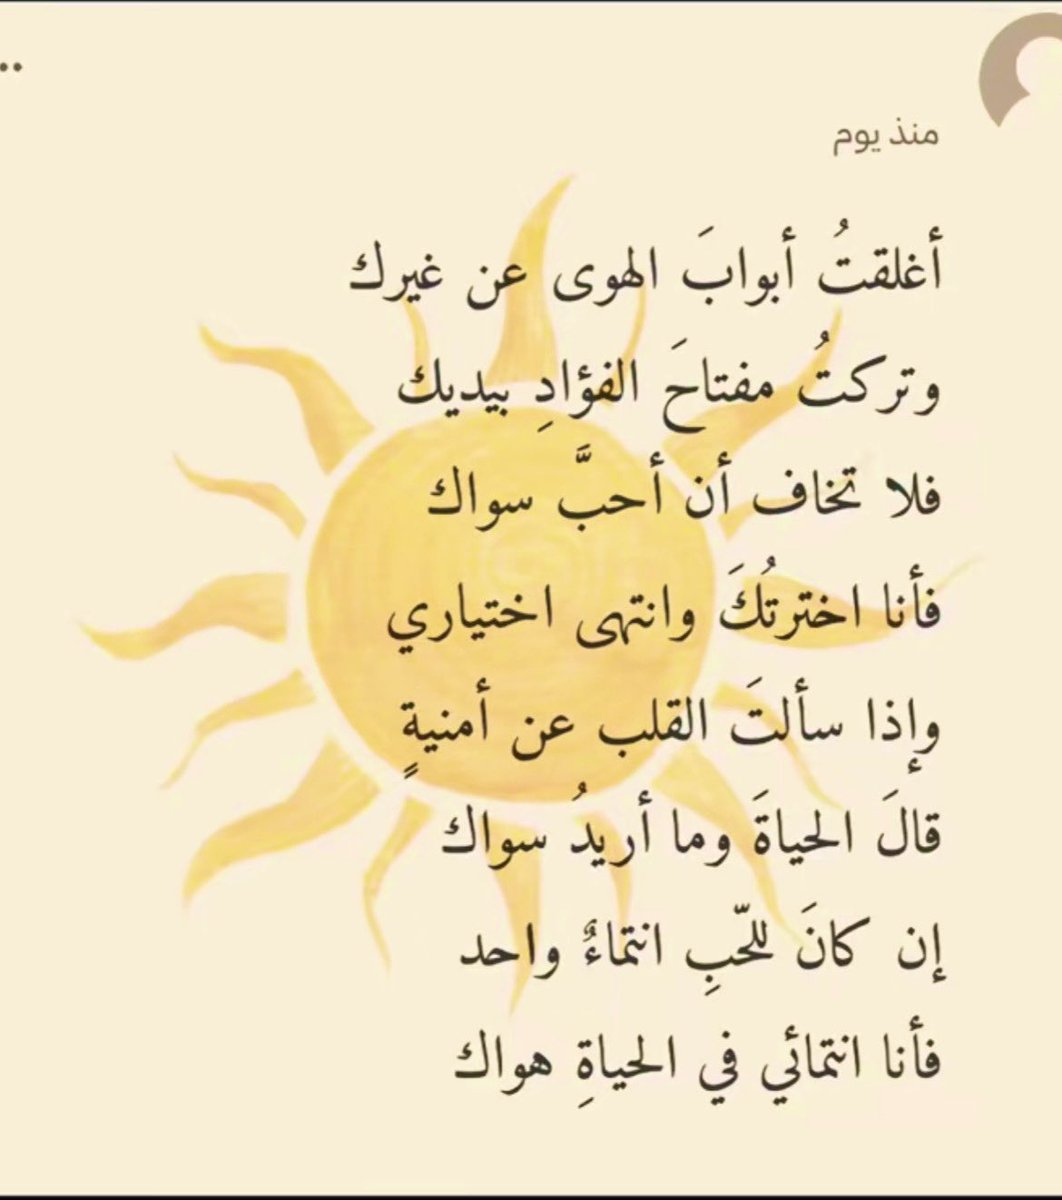 منذ يوم
أغلقتُ أبوابَ الهوى عن غيرك
وتركتُ مفتاحَ الفؤادِ بيديك
فلا تخاف أن أحبَّ سواك
فأنا اخترتُكَ وانتهى اختياري
وإذا سألتَ القلب عن أمنيةٍ
قالَ الحياةَ وما أريدُ سواك
إن كانَ للحّبِ انتماءٌ واحد
فأنا انتمائي في الحياةِ هواك